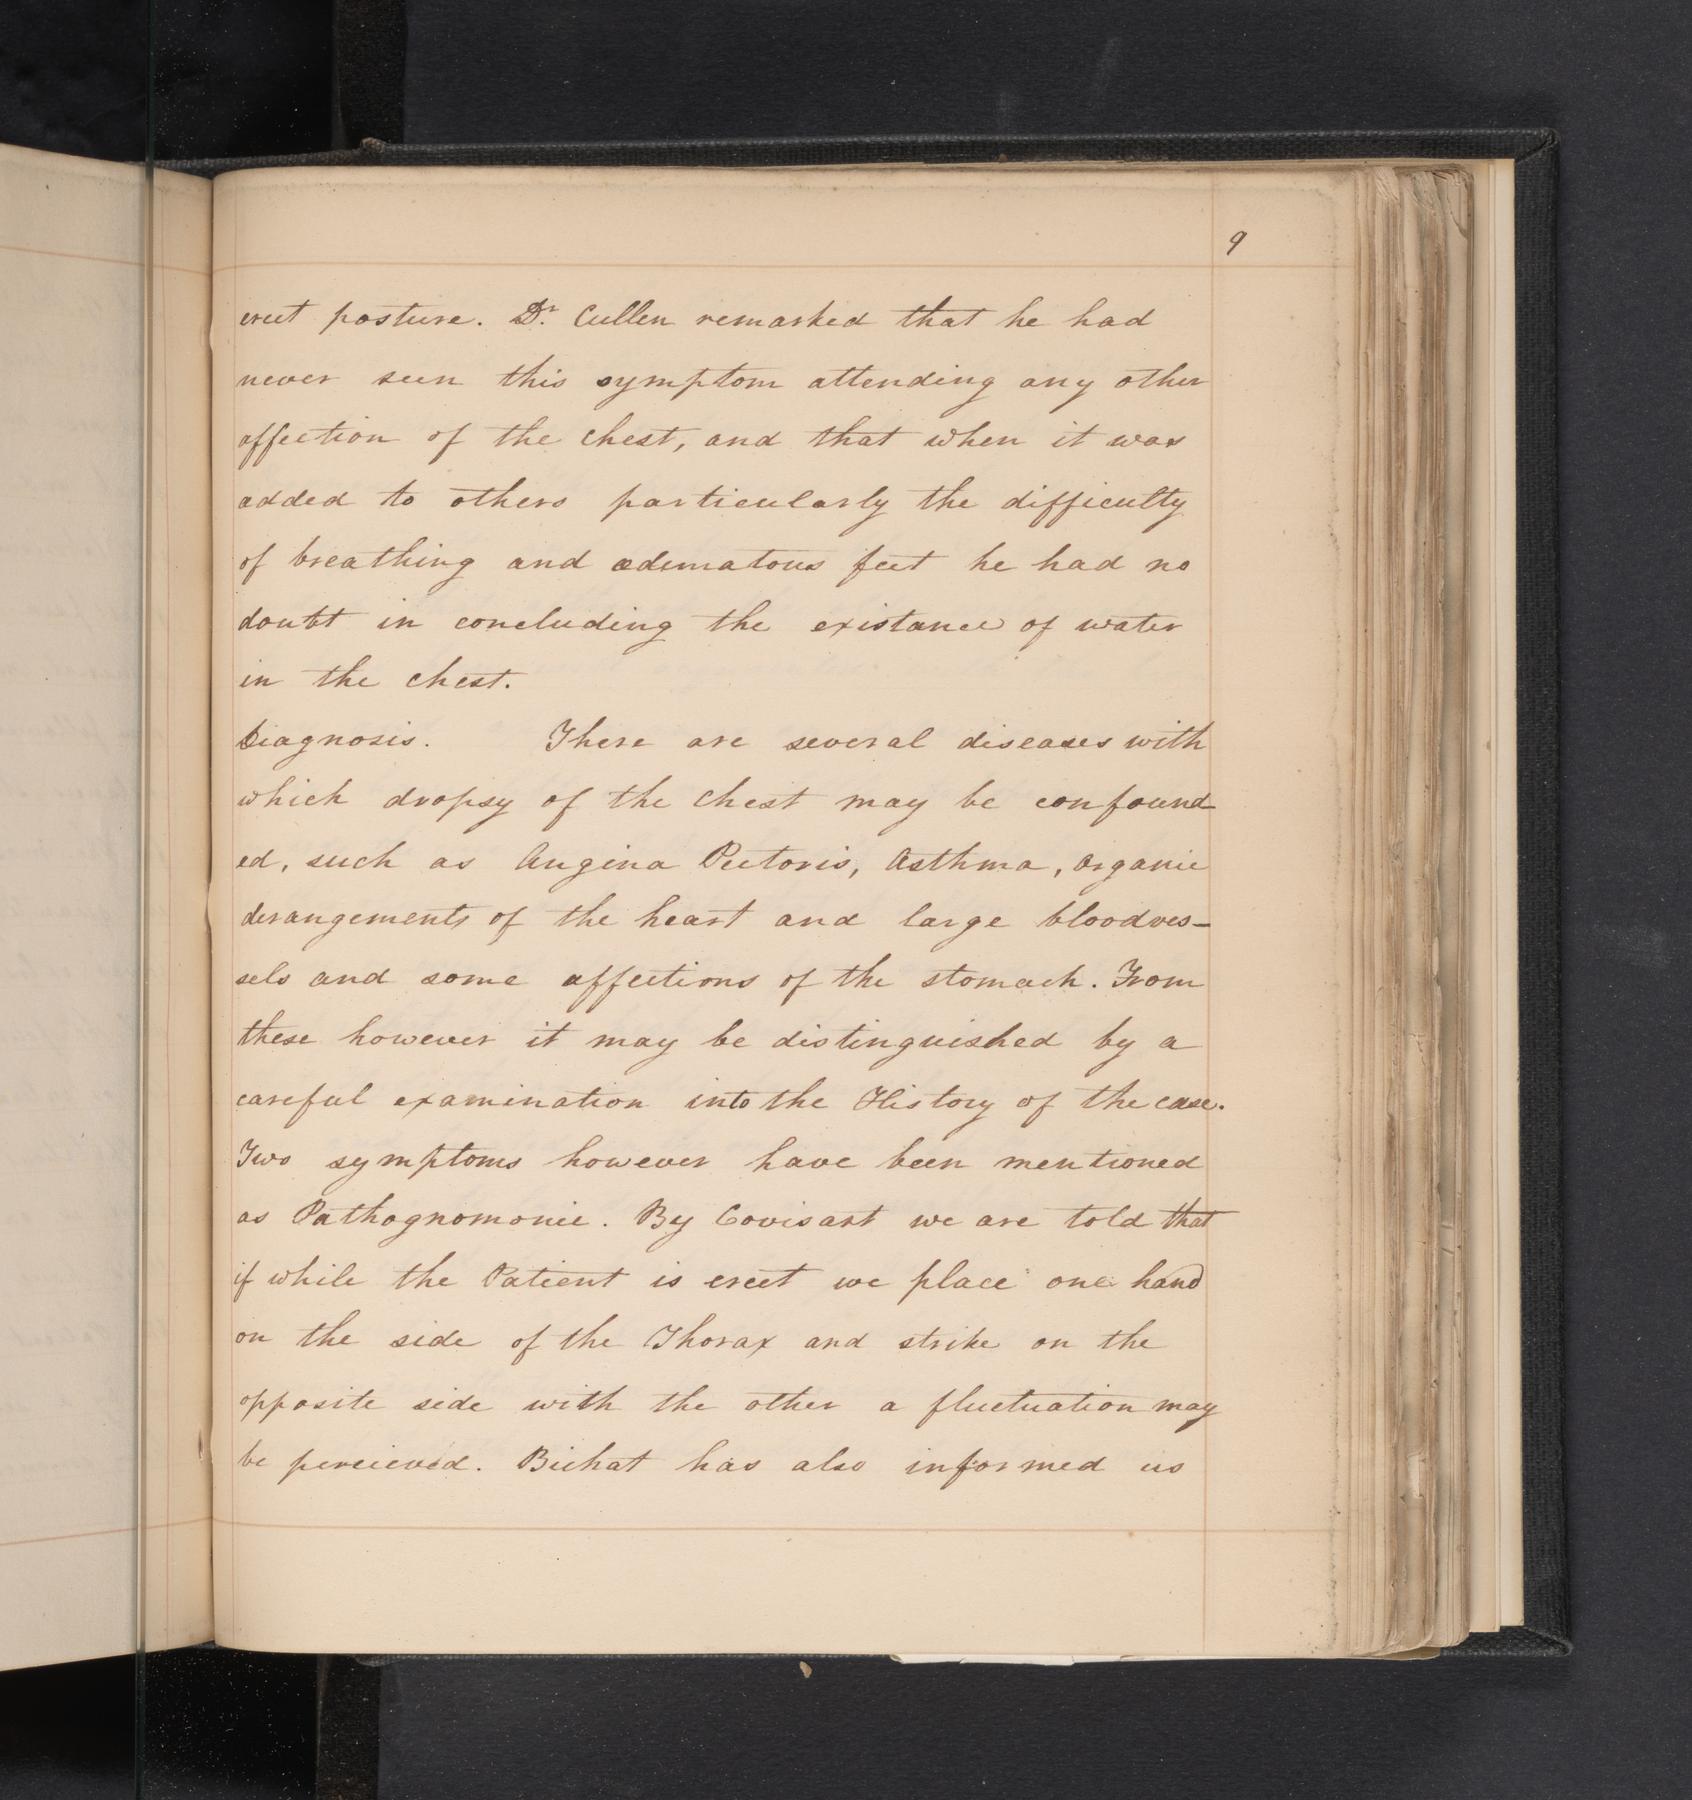 9
erect posture. Dr. Cullen remarked that he had
never seen this symptom attending any other
affection of the chest, and that when it was
added to others particularly the difficulty
of breathing and œdematous feet he had no
doubt in concluding the existance of water
in the chest.
Diagnosis. There are several diseases with
which dropsy of the chest may be confound
ed, such as Angina Pectoris, Asthma, organic
derangements of the heart and large bloodves-
sels and some affections of the stomach. From
these however it may be distinguished by a
careful examination into the History of the case.
Two symptoms however have been mentioned
as Pathognomonic. By Covisart we are told that
if while the Patient is erect we place one hand
on the side of the Thorax and strike on the
opposite side with the other a fluctuation may
be percieved. Bichat has also informed us